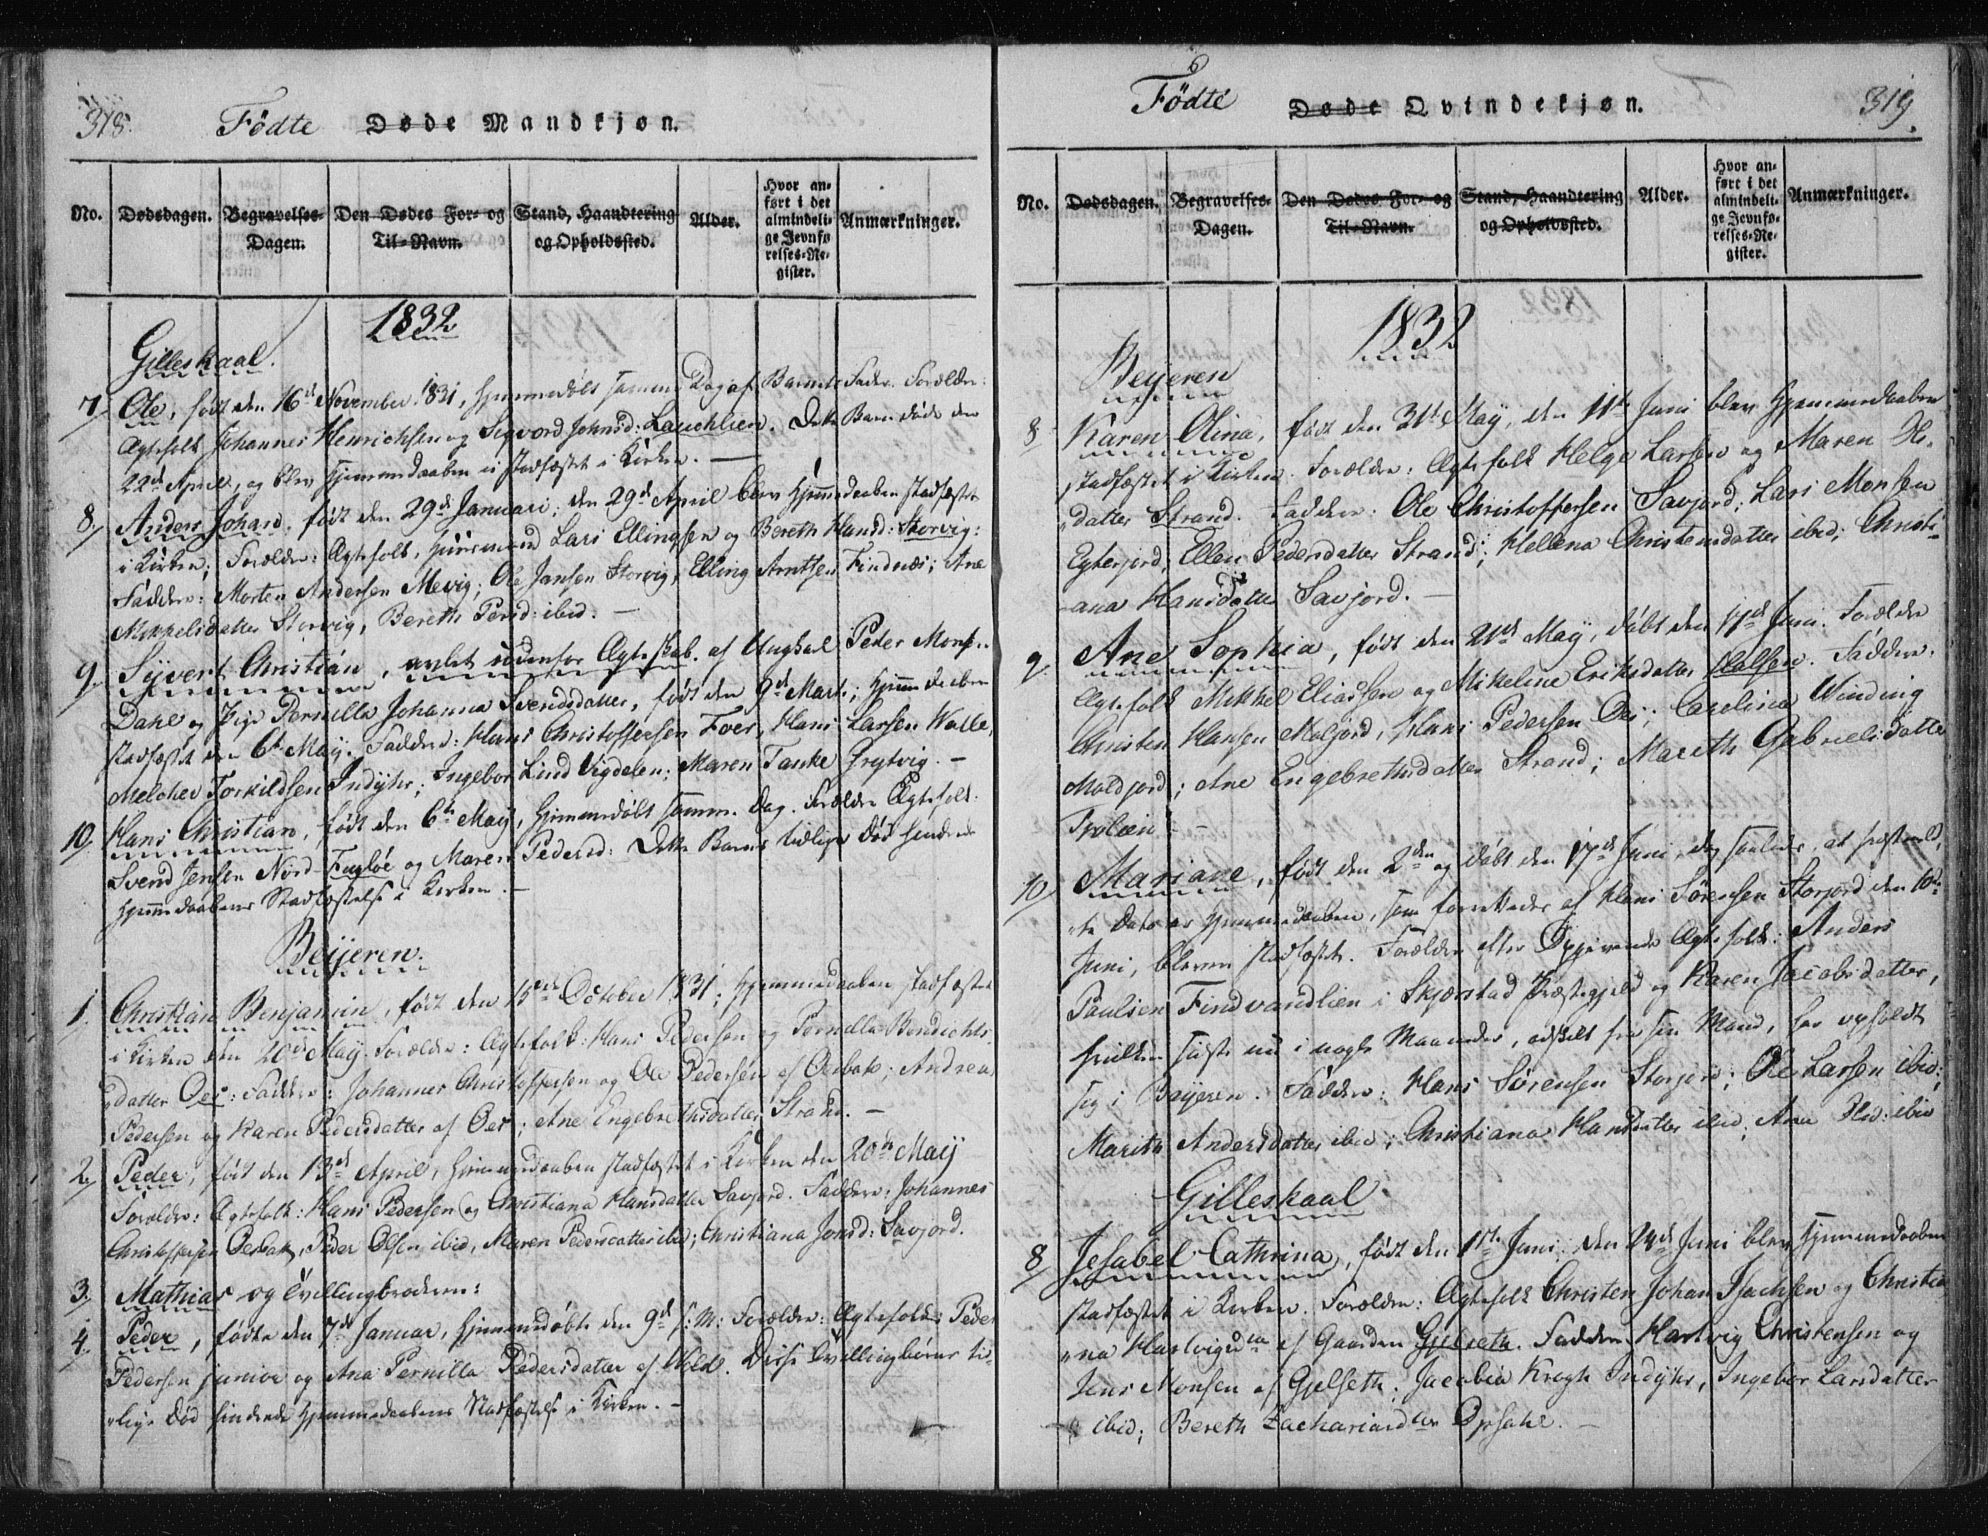 318.
Födte Døde Mandkjøn.
No. Dødsdagen. Begravelses-Dagen. Den Dødes For- og Til-Navn. Stand, Haandtering og Opholdssted. Alder. Hvor anført i det almindelige Jevnførelses-Register. Anmærkninger.
1832
Gilleskaal.
7. Ole, født den 16de November 1831, hjemmedøbt samme Dag af Barnets Fader. Forældre:
Ægtefolk Johannes Henrichsen og Sigvord Johnsd: Lauchlien. Dette Barn døde den
22de April, og blev Hjemmedaaben ei stadfæstet i Kirken. —
8. Anders Johan, født den 29de Januari; den 29de April blev Hjemmedaaben stadfæstet
i Kirken; Forældre: Ægtefolk, Huusmand Lars Ellingsen og Bereth Hansd: Storvig:
Faddere: Morten Andersen Mevig; Ole Jansen Storvig, Elling Arntsen Findnæs; Ane
Mikkelsdatter Storvig, Bereth Persd: ibid. —
9. Syvert Christian, avlet udenfor Ægteskab af Ungkarl Peder Monsen
Dahl og Pige Pernilla Johanna Svendsdatter, født den 9de Marts; Hjemmedaaben
stadfæstet den 6te May. Faddere: Hans Christoffersen Foer, Hans Larsen Walle,
Melcher Torkildsen Indyhr; Ingebor Lind Vigdelen; Maren Tanke Frytvig. —
10. Hans Christian, født den 6te May, hjemmedøbt samme Dag. Forældre Ægtefolk
Svend Jensen Nord-Fugløe og Maren Pedersd: Dette Barns tidlige Død hindrede
Hjemmedaabens Stadfæstelse i Kirken. —
Beijeren.
1. Christian Benjamin, født den 15de October 1831; Hjemmedaaben stadfæstet
i Kirken den 20de May. Forældre: Ægtefolk: Hans Pedersen og Pernilla Bendichts
datter Oes: Faddere: Johannes Christoffersen og Ole Pedersen af Oesbak; Andreas
Pedersen og Karen Pedersdatter af Oes; Ane Engebrethsdatter Strand. —
2. Peder, født den 13de April, Hjemmedaaben stadfæstet i Kirken den 20de Maij
Forældre: Ægtefolk: Hans Pedersen og Christiana Hansdatter Savjord. Faddere: Johannes
Christoffersen Oesbak, Peder Olsen ibid, Maren Pedersdatter ibid; Christiana Jonsd: Savjord.
3. Mathias og Tvillingbroderen:
4. Peder, fødte den 7de Januar, hjemmedøbte den 9de s: M: Forældre: Ægtefolk: Peder
Pedersen junior og Ana Pernilla Pedersdatter af Wold. Disse Tvillingbørns ti-
lige Død hindrede Hjemmedaabens Stadfæstelse i Kirken. —
319.
Födte Døde Qvindekjøn.
No. Dødsdagen. Begravelses-Dagen. Den Dødes For- og Til-Navn. Stand, Haandtering og Opholdssted. Alder. Hvor anført i det almindelige Jevnførelses-Register. Anmærkninger.
1832
Beijeren
8. Karen Olina, født den 31te May, den 11te Juni blev Hjemmedaaben
stadfæstet i Kirken. Forældre: Ægtefolk Helge Larsen og Maren
datter Strand. Faddere: Ole Christoffersen Savjord; Lars Monsen
Egterjord; Ellen Pedersdatter Strand; Hellena Christensdatter ibid; Christi-
ana Hansdatter Savjord. —
9. Ane Sophia, født den 21de May, døbt den 11te Juni. Forældre
Ægtefolk Mikkel Eliassen og Mikeline Eriksdatter. Faddere:
Christen Hansen Moljord, Hans Pedersen Oes; Carolina Winding
Moldjord; Ane Engebrethsdatter Strand; Mareth Gabrielsdatter
10. Mariane, født den 2den og døbt den 17de Juni, dog saaledes, at
Dato er Hjemmedaaben, som forrettedes af Hans Sörensen Storjord den 10de
Juni, bleven stadfæstet. Forældre efter Opgivende Ægtefolk: Anders
Paulsen Findvandlien i Skjerstad Præstegjeld og Karen Jacobsdatter,
hvilken sidste nu i nogle Maaneder, adskilt fra sin Mand, har opholdt
sig i Beijeren. Faddere: Hans Sörensen Storjord; Ole Larsen ibid;
Marith Andersdatter ibid; Christiana Hansdatter ibid; Ana Olsd: ibid
Gilleskaal
8. Jesabel Cathrina, født den 1ste Juni: den 24de Juni blev Hjemmedaaben
stadfæstet i Kirken. Forældre: Ægtefolk Christen Johan Isachsen og Christia-
na Hartvigsd af Gaarden Gjelseth. Faddere: Hartvig Christensen og
Jens Monsen af Gjelseth; Jacobia Krogh Indyhr, Ingebor Larsdatter
ibid; Bereth Zachariasd Opsahl. —